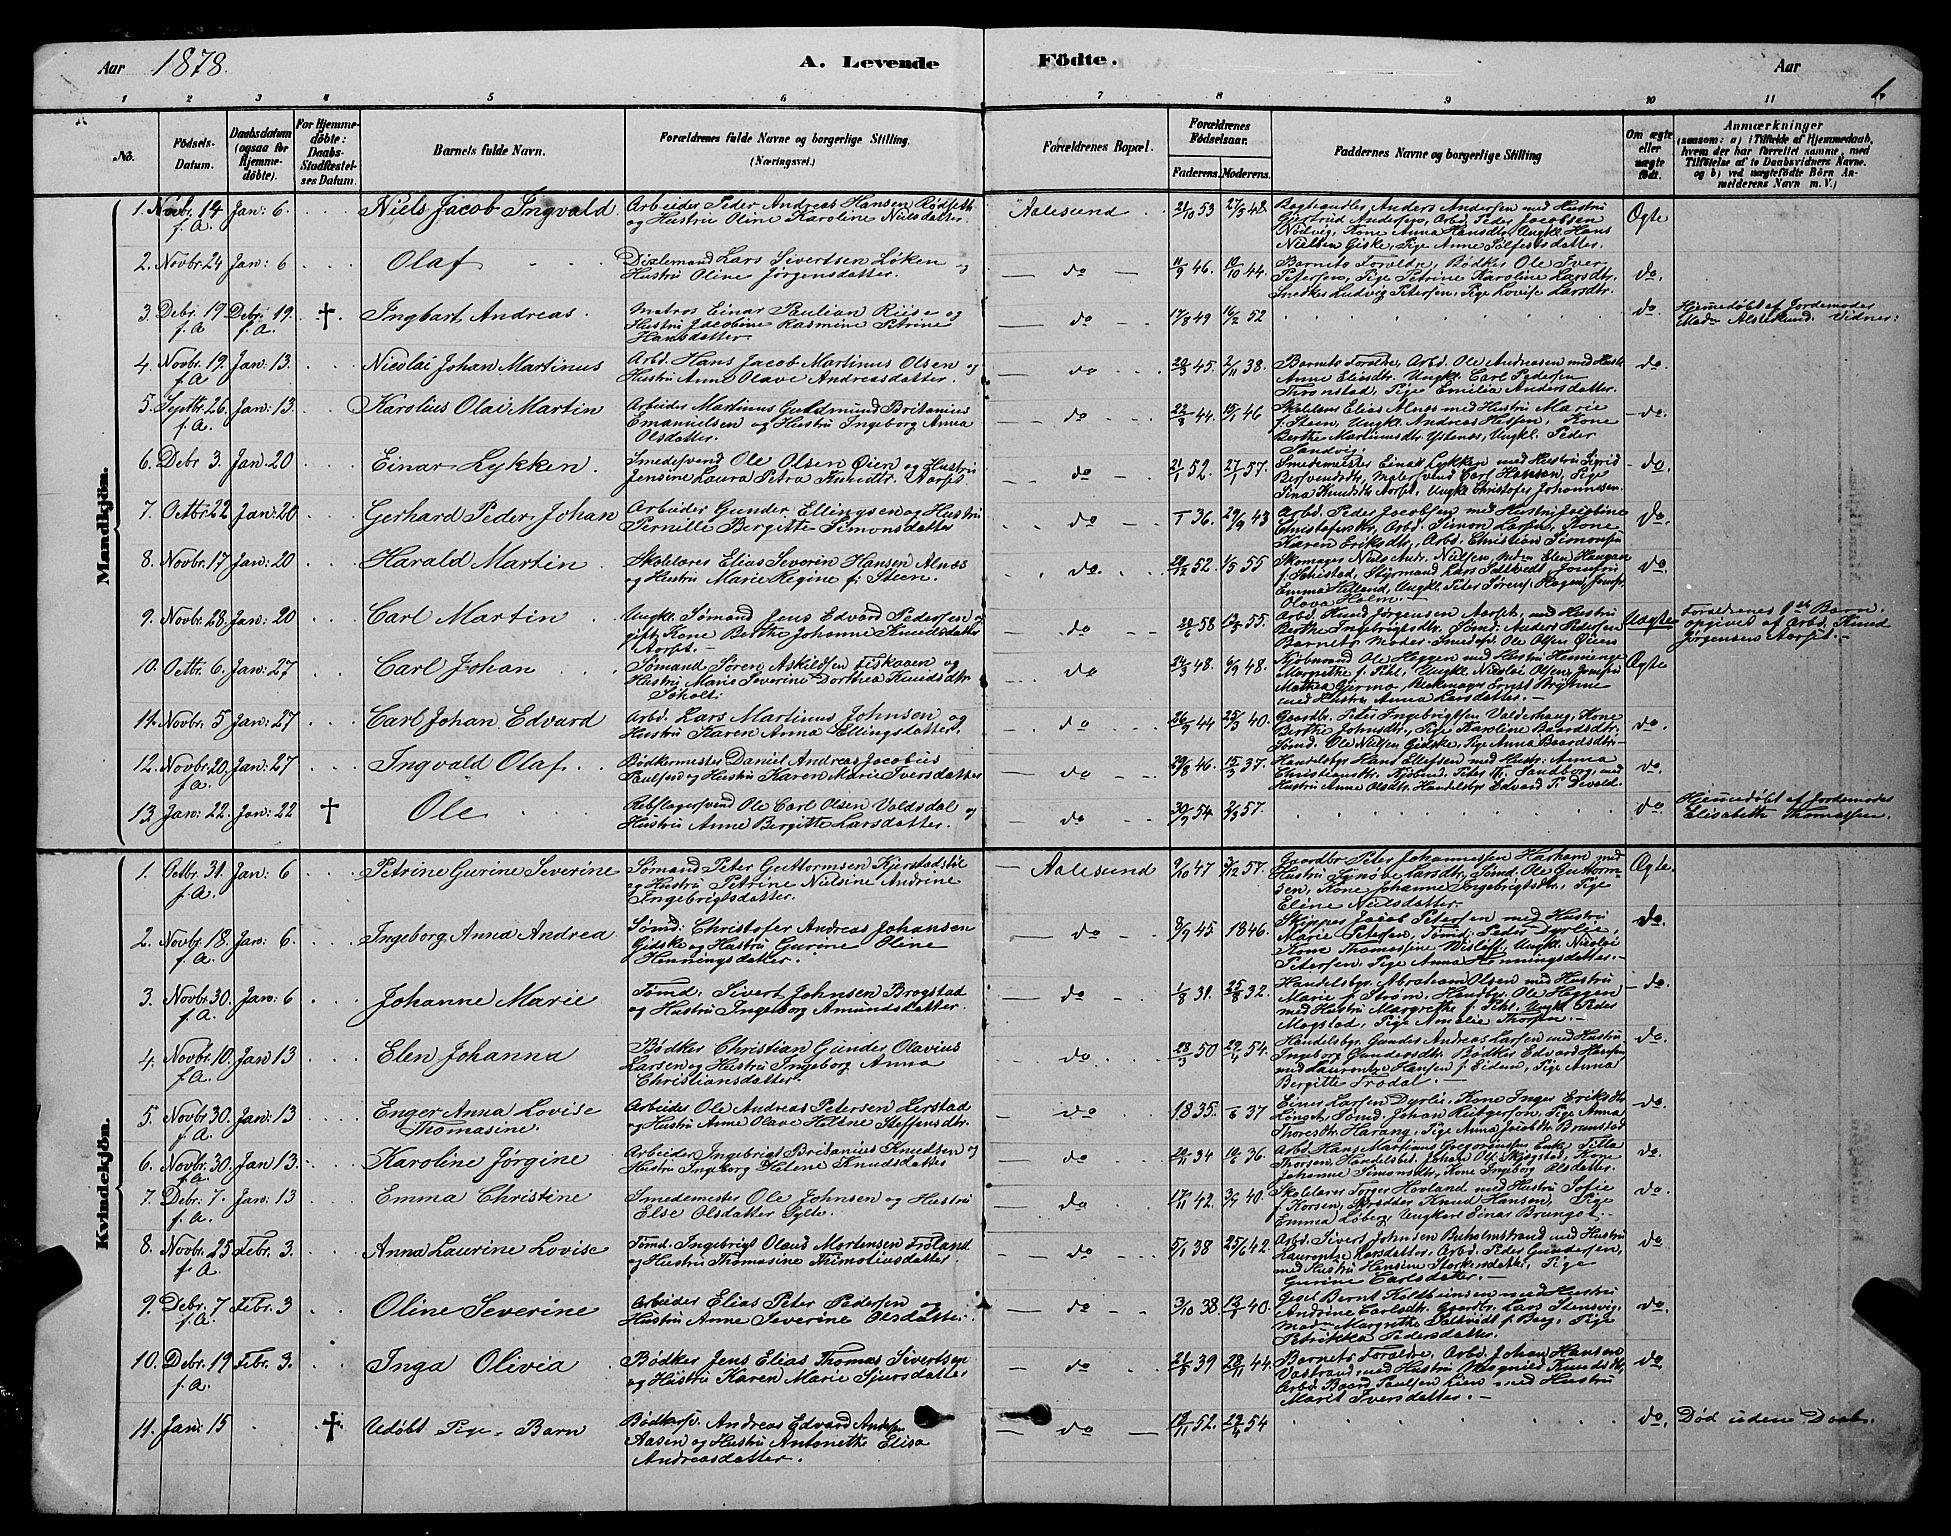 Aar 1878. A. Levende Födte. Aar 1.
1 2 3 4 5 6 7 8 9 10 11
No. Födsels-Datum. Daabsdatum (ogsaa for Hjemme-döbte). For Hjemme-döbte: Daabs-Stadfæstel-ses Datum. Barnets fulde Navn. Forældrenes fulde Navne og borgerlige Stilling. (Næringsvei.) Forældrenes Bopæl. Forældrenes Födselsaar. Faderens. Moderens. Faddernes Navne og borgerlige Stilling Om ægte eller uægte födt. Anmærkninger (saasom: a) i Tilfælde af Hjemmedaab, hvem der har forrettet samme, med Tilföielse af to Daabsvidners Navne. og b) ved uægtefödte Börn An-melderens Navn m. V.)
Mandkjön.
1. Novbr. 14 f.A. Jan: 6. Niels Jacob Ingvald Arbeider Peder Andreas Hansen Rødseth og Hustru Oline Karoline Nielsdatter. Aalesund 53 48 Anders Andersen med Hustru Gjertrud Andersen, Arb. Peder Jacobsen Nødvig, Kone Anna Hansdtr. Ungkl. Hans Nielsen Giske, Pige Anne Ægte
2. Novbr. 24 Jan: 6 Olaf Lars Sivertsen Løken og Hustru Oline Jørgensdatter. do 11/9 46. 44. Barnets Forældre, Bødker Ole Iver Petersen, Pige Petrine Karoline Larsdtr. Snedker Ludvig Petersen, Pige Lovise Larsdtr. do.
3. Debr. 19 f.A. Debr. 19. f.A. † Ingbart Andreas. Matros Einar Paulian Riise og Hustru Jacobine Rasmine Petrine Hansdatter. do 17/8 49 16/2 52 do. Hjemmedøbt af Jordemoder Mad. Vidner:
4. Novbr. 19. f.A Jan: 13. Nicolai Johan Martinus Arbd. Hans Jacob Martinus Olsen og Hustru Anne Olave Andreasdatter. do 45. 2/11 38. Barnets Forældre, Arbd. Ole Andreasen med Hustru Anne Eliasdtr. Ungkl. Carl Pedersen Thronstad, Pige Emilia Andersdatter. do.
5. Septbr. 26. f.A. Jan: 13. Karolius Olai Martin Arbeider Martinus Guldmund Britanius Emanuelsen og Hustru Ingeborg Anna Olsdatter. do 44. 15/1 46 Skolelærer Elias Alnæs med Hustru Marie f. Steen, Ungkl. Andreas Hessen, Kone Berthe Martinusdtr. Ystenæs, Ungkl. Peder Sandvig. do.
6. Debr 3. Jan. 20 Einar Lykken. Smedesvend Ole Olsen Øien og Hustru Jensine Laura Petra Knudsdtr. Aarset. do 21/1 52. 27/1 57. Smedemester Einar Lykken med Hustru Sigrid Malersvend Carl Hansen, Pige Sina Knudsdtr. Aarset, Ungkl. Christofer Johannesen. do.
7. Octbr. 22 Jan: 20 Gerhard Peder Johan Arbeider Gunder Ellingsen og Hustru Pernille Bergitte Simonsdatter do 36. 29/9 43 Arbd. Peder Jacobsen med Hustru Jacobine Arbd. Simon Larsen, Kone Karen Eriksdtr, Arbd. Christian Simonsen do.
8. Novbr. 17 Jan: 20 Harald Martin Skolelærer Elias Severin Hansen Alnæs og Hustru Marie Regine f: Steen. do. 52. 1/5 55 Skomager Niels Andr. Nielsen, Styrmand Lars Emma Helland, Ungkl. Peter Olava Holm. do.
9. Novbr. 28. Jan: 20 Carl Martin Ungkl. Sømand Jens Edvard Pedersen og gift Kone Berthe Johanne Knudsdatter Aarset. do 58 55. Arbd. Knud Jørgensen Aarset med Hustru Berthe Ingebrigtsdtr. Sømd. Anders Pedersen Barnets Moder, Smedesv. Ole Olsen Øiens Uægte Forældrenes 9de Barn. opgivet af Arbd. Knud Jørgensen Aarset.
10. Octbr. 6. Jan: 27 Carl Johan Sømand Søren Askildsen Fiskaaen og Hustru Marie Severine Dorthea Knudsdtr. Søholt. do 24/3 48. 6/9 48. Kjøbmand Ole Heggen med Hustru Margrethe f. Pihl, Ungkl. Nicolai Olsen, Mathea Gjermo, med Hustru Anna Larsdatter. Ægte
11. Novbr. 5 Jan: 27 Carl Johan Edvard Arbd. Lars Martinus Johnsen og Hustru Karen Anna Ellingsdatter. do 44 25/3 40. Gaardbr. Peter Ingebrigtsen Valderhaug, Kone Berthe Johnsdtr., Pige Karoline Baardsdtr. Sømd. Ole Nielsen Gidske, Pige Anna Baardsdtr. do.
12. Novbr. 20. f.A. Jan: 27 Ingvald Olaf. Bødkermester Daniel Andreas Jacobus Paulsen og Hustru Karen Marie Iversdatter do 29/8 46. 15/3 37. Handelsbgr. Hans Ellefsen med Hustr. Anna Christiansdtr, Kjøbmd. Peter Sandborg med Hustru Anne Olsdtr. Handelsbgr. Edvard do
13. Jan: 22. Jan: 22 † Ole Rebslagersvend Ole Carl Olsen Valdsdal og Hustru Anne Bergitte Larsdatter. do 30/9 54 2/3 57. do Hjemmedøbt af Jordemoder Elisabeth Thomassen.
Kvindekjön.
1. Octbr. 31. f.A. Jan: 6 Petrine Gurine Severine Sømand Peter Guttormsen Kjerstadstøl og Hustru Petrine Nielsine Andrine Ingebrigtsdatter. Aalesund 9/10 47 3/12 57. Gaardbr. Peter Johannessen Harham med Hustru Synøve Larsdtr, Sømd. Ole Guttormsen, Kone Johanne Ingebrigtsdtr, Pige Eline Nielsdatter. Ægte.
2. Novbr. 18. f.A. Jan: 6. Ingeborg Anna Andrea Sømd: Christofer Andreas Johansen Gidske og Hustru Gurine Oline Henningsdatter. do 8/9 45. 1846. Skipper Jacob Petersen med Hustru Marie Petersen, Sømd. Peder Dyrlie, Kone Thomasine Wisløff, Ungkl. Nicolai Petersen, Pige Anna Henningsdatter. do.
3. Novbr. 30. f.A. Jan: 6 Johanne Marie Sømd. Sivert Johnsen Brogstad og Hustru Ingeborg Amundsdatter. do 1/8 31. 25/8 32. Handelsbgr. Abraham Olsen med Hustru Marie f. Strøm, Handbgr. Ole Heggen med Hustru Margrethe f. Pihl, Ungkl. Peder Mogstad, Pige Amalie Thorsen. do.
4. Novbr. 10. f.A. Jan 13 Elen Johanna Bødker Christian Gunder Olavius Larsen og Hustru Ingeborg Anna Christiansdatter. do 28/3 50 54. Handelsbgr. Gunder Andreas Larsen med Hustru Ingeborg Gundersdtr. Bødker Edvard Hansen med Laurentze Hansen f. Eidem, Pige Anna Bergitte Frødal. do.
5. Novbr. 30. f.A. Jan: 13 Enger Anna Lovise Thomasine. Arbeider Ole Andreas Petersen Lerstad og Hustru Anne Olave Helene Steffensdtr. do 1835. 37 Einer Larsen Dyrlie, Kone Inger Eriksdtr. Sømd. Johan Rutgersen, Pige Anna Thoresdtr. Harang, Pige Anna Jacobdtr. Brunstad do.
6. Novbr. 30. f.A. Jan 13. Karoline Jørgine Arbeider Ingebrigt Britanius Knudsen og Hustru Ingeborg Helene Knudsdatter do 34 36. Arbd. Hans Martinus Gregoriussen Thorsen, Handelsbet. Johan Ol. Skjegstad, Kone Johanne Simonsdtr, Kone Ingeborg Olsdatter. do.
7. Debr. 7. f.A. Jan: 13 Emma Christine Smedemester Ole Johnsen og Hustru Else Olsdatter Sylte. do 17/11 42. 40. Skolelærer Torger Hovland med Hustru Sofie f. Korsen, Skrædder Knud Hansen, Pige Emma Løberg, Ungkarl Einar Brunget. do.
8. Novbr. 25. f.A. Febr. 3. Anna Laurine Lovise Sømd. Ingebrigt Olaus Mortensen Frøland og Hustru Thomasine Thimoteusdatter. do 5/1 38 25/6 42. Arbd. Sivert Johnsen Buholmstrand med Hustru Laurentze Larsdatter, Arbd. Peder Gundersen, med Hustru Hansine Storkersdatter, Pige Gurine Carlsdatter. do.
9. Debr. 7 f.A. Febr. 3 Oline Severine Arbeider Elias Peter Pedersen og Hustru Anne Severine Olsdatter. do 3/10 38 40. Gesel Bernt Koldbeinsen med Hustru Andrine Carlsdtr. Gaardbr. Lars Stensvig, Margrethe f. Berg, Pige Petrikka Pedersdatter. do.
10. Debr. 19 f.A. Febr. 3. Inga Olivia Bødker Jens Elias Thomas Sivertsen og Hustru Karen Marie Sjursdatter do 39 44. Barnets Forældre, Arbd. Johan Hansen Vastrand med Hustru Knudsdtr, Arbd. Baard Paulsen Lien med Hustru Marit Iversdatter. do
11. Jan: 15 † Udøbt Pige-Barn Bødkersv. Andreas Edvard Andersen Aasen og Hustru Antonette Elisa Andreasdatter. do 52. 54 do. Død uden Daab.